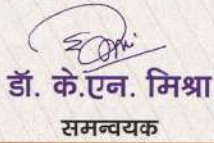 डॉ. के.एन. मिश्रा
समन्वयक